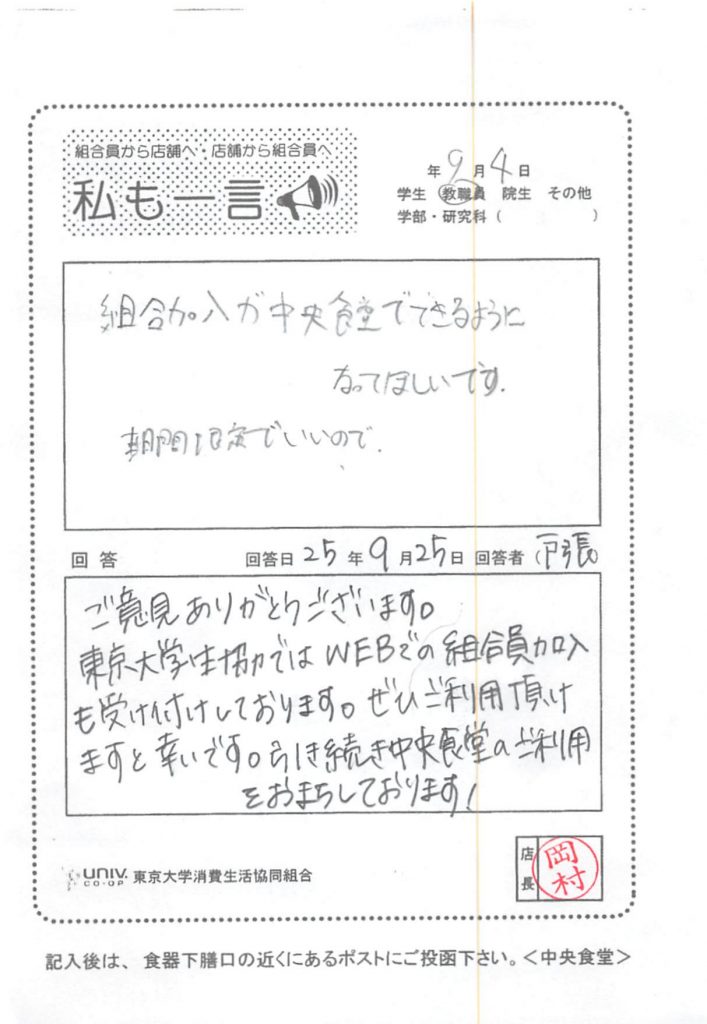 組合員から店舗へ・店舗から組合員へ
私も一言
年9月4日
学生 教職員 院生 その他
学部・研究科（ ）
組合加入が中央食堂でできるように
なってほしいです.
期間限定でいいので.
回答 回答日25年9月25日 回答者（戸張）
ご意見ありがとうございます。
東京大学生協ではWEBでの組合員加入
も受け付けしております。ぜひご利用頂け
ますと幸いです。引き続き中央食堂のご利用
をおまちしております!
UNIV. CO-OP 東京大学消費生活協同組合
店長 岡村
記入後は、食器下膳口の近くにあるポストにご投函下さい。＜中央食堂＞